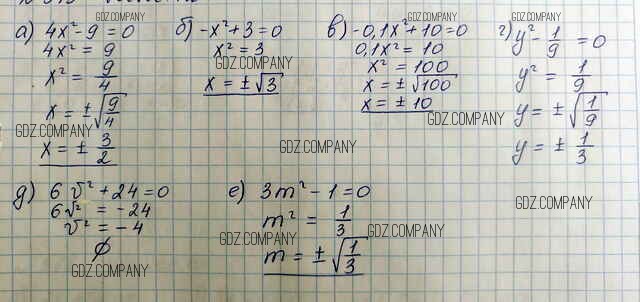 а) 4x² - 9 = 0
4x² = 9
x² = 9/4
x = ± √9/4
x = ± 3/2
б) -x² + 3 = 0
x² = 3
x = ± √3
в) -0,1x² + 10 = 0
0,1x² = 10
x² = 100
x = ± √100
x = ± 10
г) y² - 1/9 = 0
y² = 1/9
y = ± √1/9
y = ± 1/3
д) 6v² + 24 = 0
6v² = -24
v² = -4
∅
е) 3m² - 1 = 0
m² = 1/3
m = ± √1/3
GDZ.COMPANY
GDZ.COMPANY
GDZ.COMPANY
GDZ.COMPANY
GDZ.COMPANY
GDZ.COMPANY
GDZ.COMPANY
GDZ.COMPANY
GDZ.COMPANY
GDZ.COMPANY
GDZ.COMPANY
GDZ.COMPANY